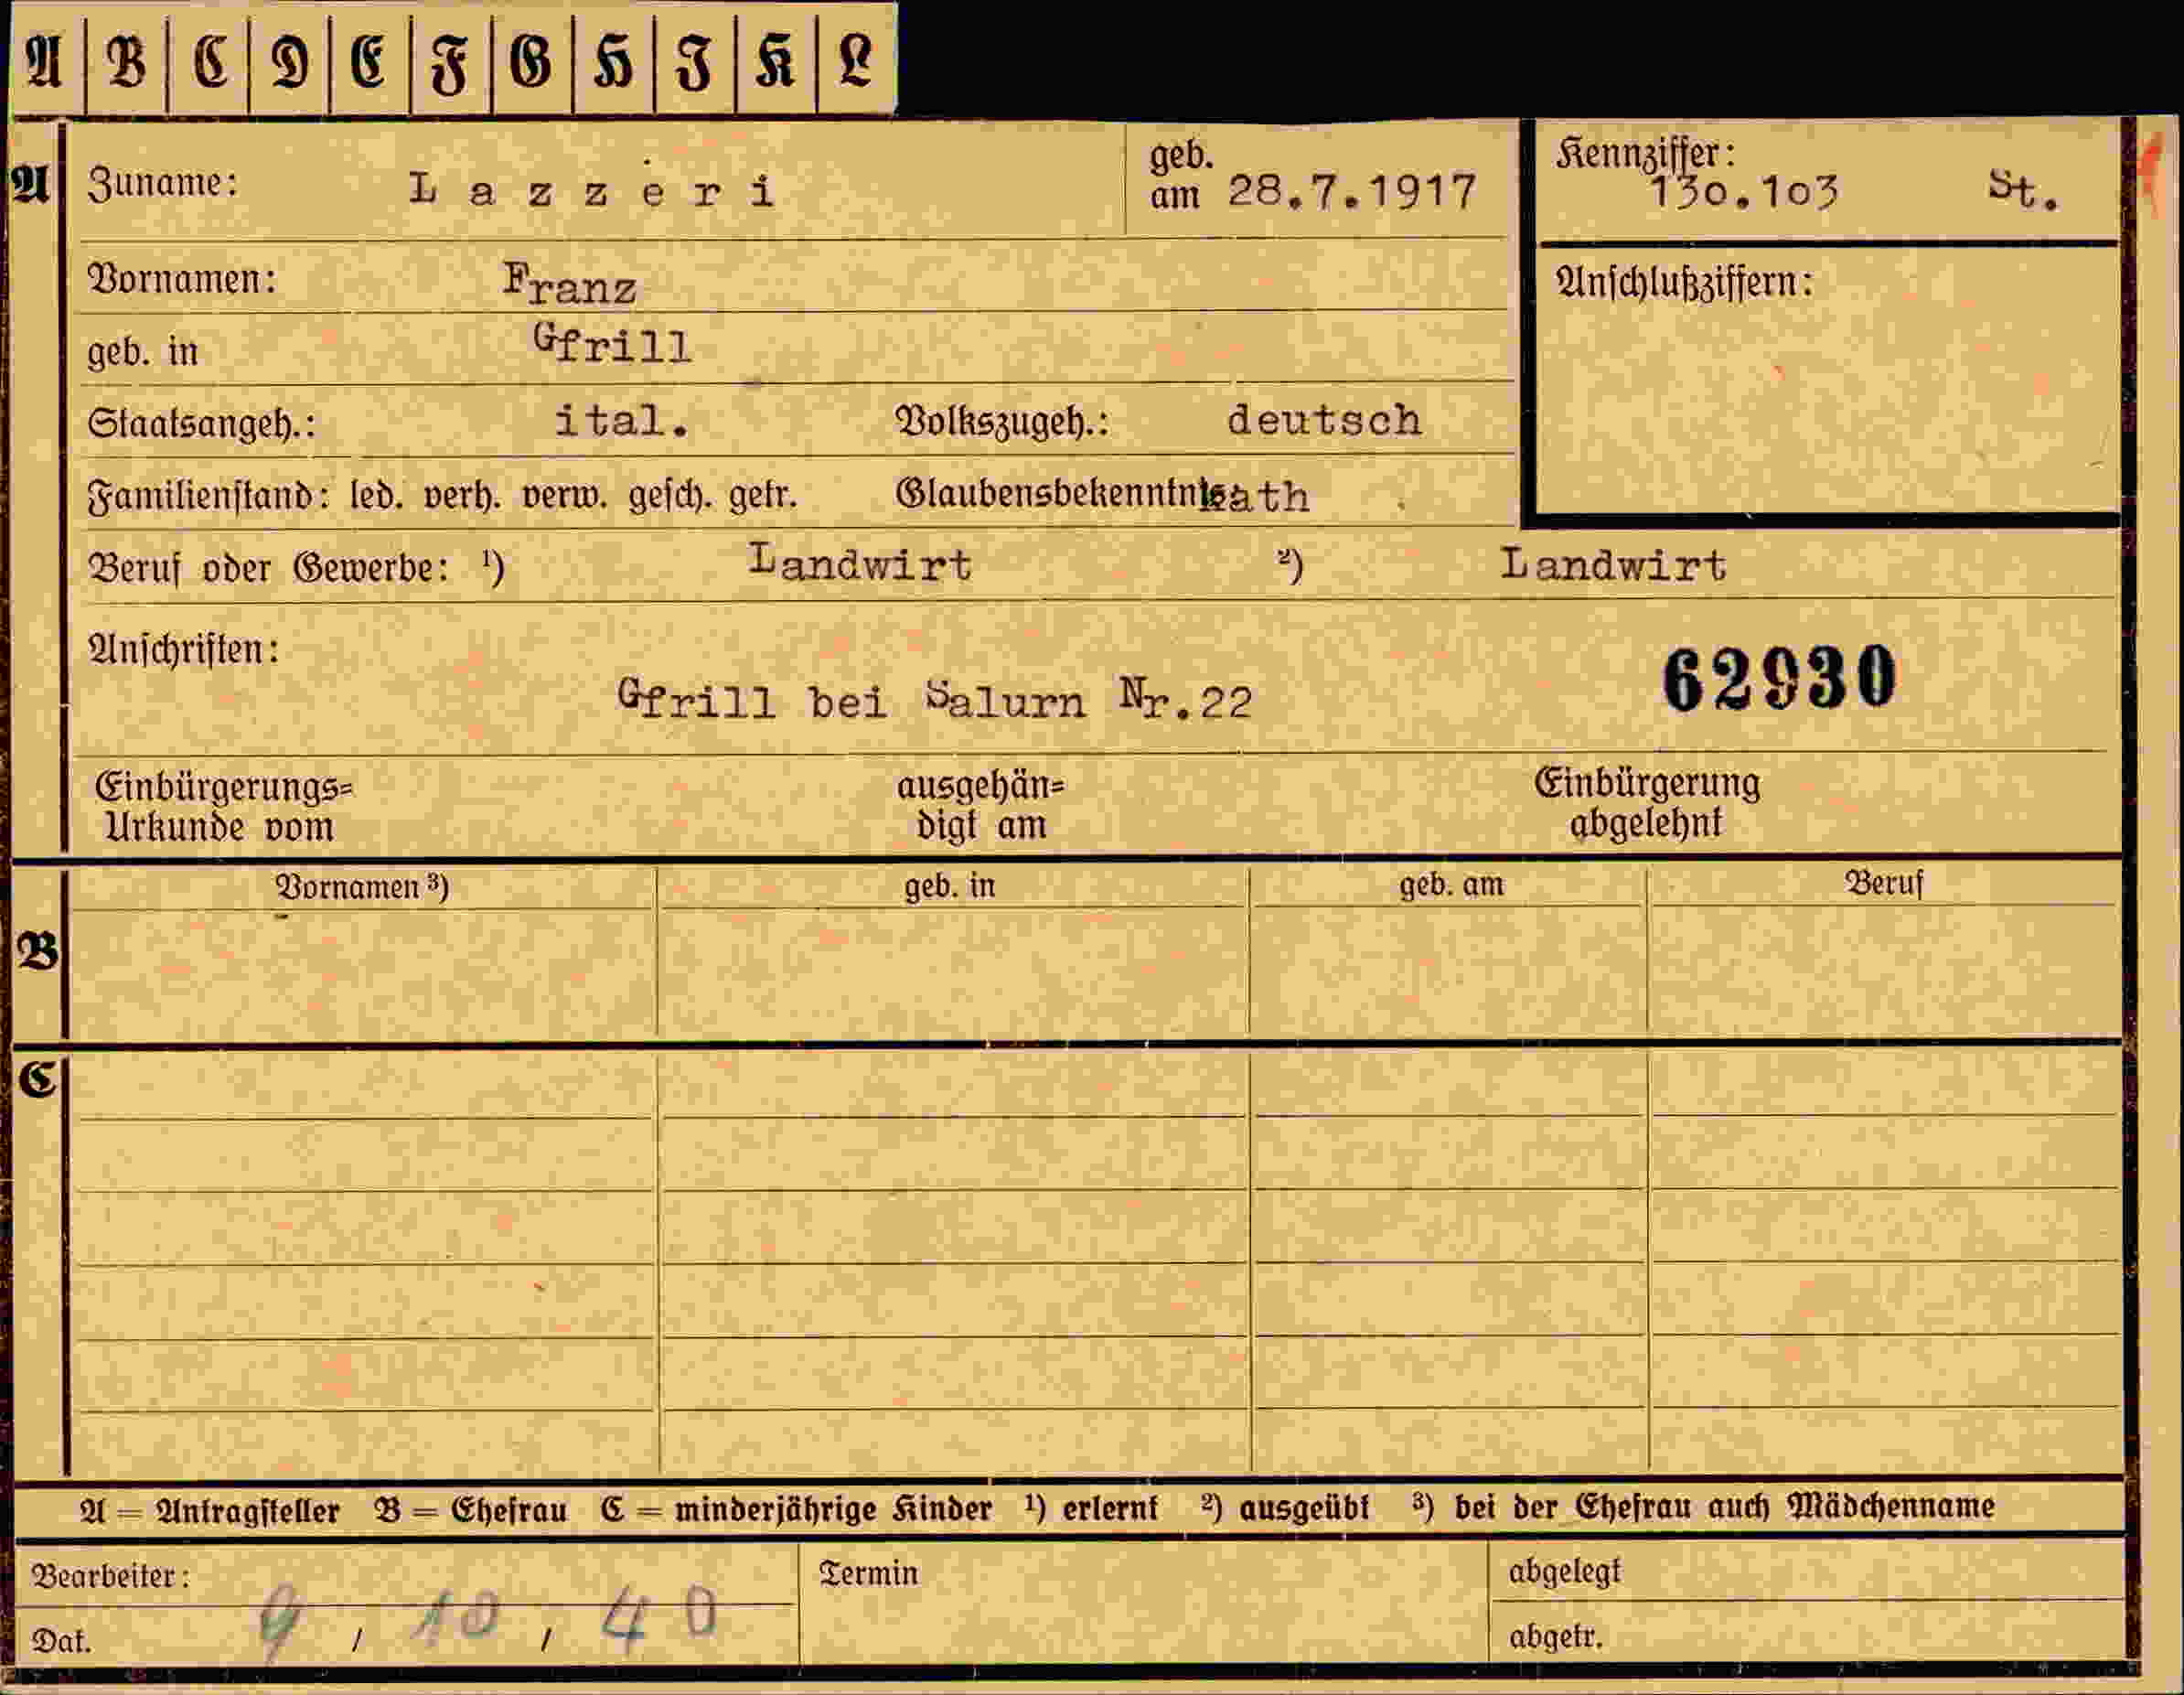 A B C D E F G H I K L
A Zuname: Lazzeri geb. am 28.7.1917 Kennziffer: 130.103 St.
Vornamen: Franz Anschlußziffern:
geb. in Gfrill
Staatsangeh.: ital. Volkszugeh.: deutsch
Familienstand: led. verh. verw. gesch. getr. Glaubensbekenntnis kath.
Beruf oder Gewerbe: ¹) Landwirt ²) Landwirt
Anschriften: 62930
Gfrill bei Salurn Nr.22
Einbürgerungs= ausgehän= Einbürgerung
Urkunde vom digt am abgelehnt
Vornamen ³) geb. in geb. am Beruf
B
C
A = Antragsteller B = Ehefrau C = minderjährige Kinder ¹) erlernt ²) ausgeübt ³) bei der Ehefrau auch Mädchenname
Bearbeiter: Termin abgelegt
Dat. 9 / 10 / 40 abgetr.